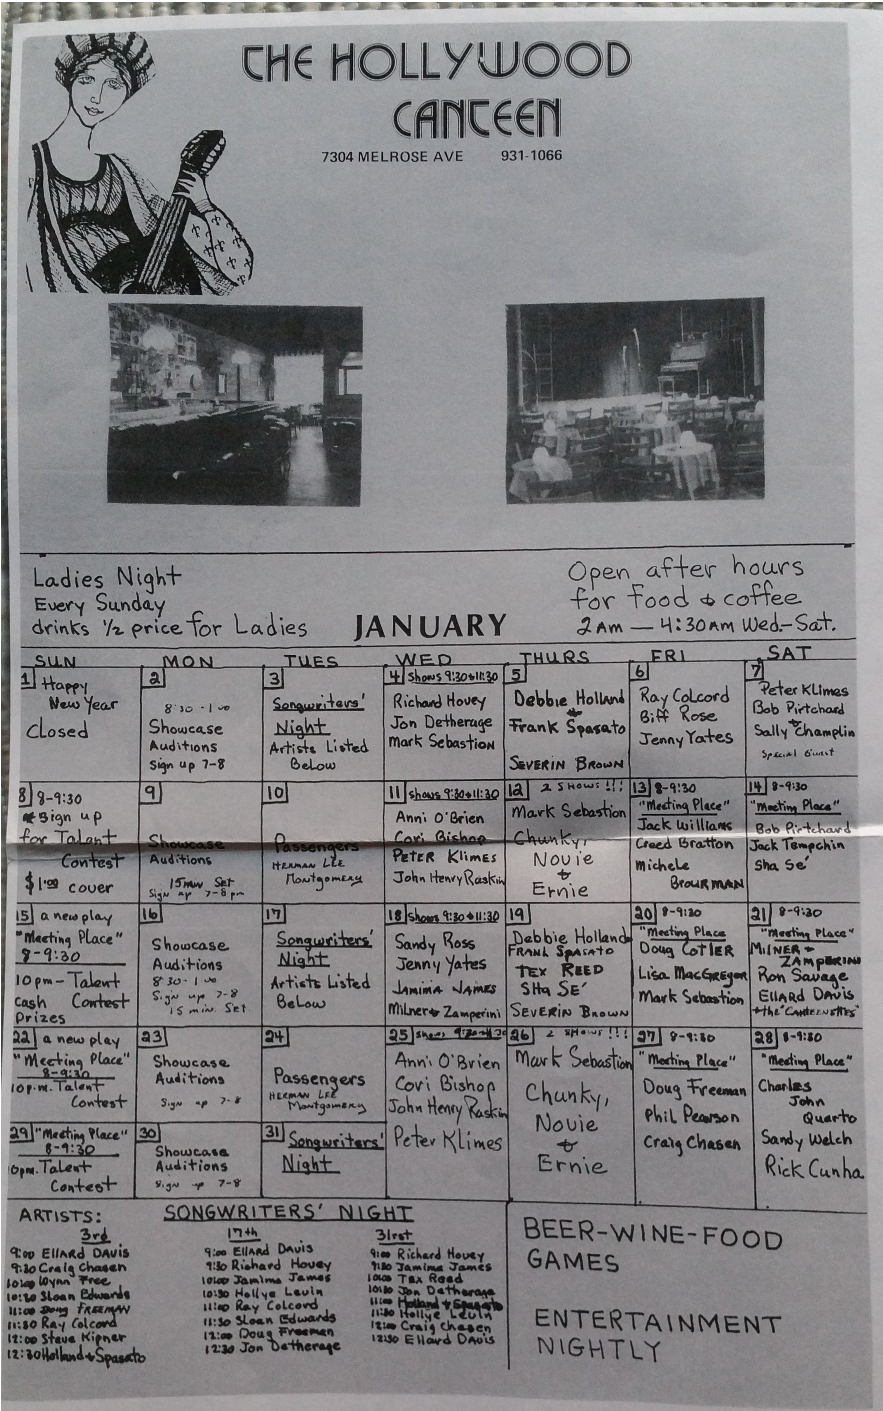 THE HOLLYWOOD
CANTEEN
7304 MELROSE AVE 931-1066
Ladies Night
Every Sunday
drinks 1/2 price for Ladies
JANUARY
Open after hours
for food & coffee
2AM — 4:30AM Wed.-Sat.
SUN MON TUES WED THURS FRI SAT
1 Happy
New Year
Closed
2
8:30-1:00
Showcase
Auditions
Sign up 7-8
3
Songwriters'
Night
Artists Listed
Below
4 Shows 9:30+11:30
Richard Hovey
Jon Detherage
Mark Sebastion
5
Debbie Holland
&
Frank Spasato
SEVERIN BROWN
6
Ray Colcord
Biff Rose
Jenny Yates
7
Peter Klimes
Bob Pirtchard
&
Sally Champlin
Special Guest
8 8-9:30
Sign up
for Talent
Contest
$1.00 cover
9
Showcase
Auditions
15 min Set
Sign up 7-8pm
10
Passengers
HERMAN LEE
Montgomery
11 shows 9:30+11:30
Anni O'Brien
Cori Bishop
PETER Klimes
John Henry Raskin
12 2 SHOWS!!!
Mark Sebastion
Chunky,
Novie
&
Ernie
13 8-9:30
"Meeting Place"
Jack Williams
Creed Bratton
Michele
BROURMAN
14 8-9:30
"Meeting Place"
Bob Pirtchard
Jack Tempchin
Sha Sé
15 a new play
"Meeting Place"
8-9:30
10pm-Talent
Cash Contest
Prizes
16
Showcase
Auditions
8:30-1:00
Sign up 7-8
15 min. Set
17
Songwriters'
Night
Artists Listed
Below
18 shows 9:30+11:30
Sandy Ross
Jenny Yates
JAMIMA JAMES
Milner & Zamperini
19
Debbie Holland
FRANK SPASATO
TEX REED
SHA SE'
SEVERIN BROWN
20 8-9:30
"Meeting Place
Doug COTLER
Lisa MacGREGOR
Mark Sebastion
21 8-9:30
"Meeting Place"
MILNER &
ZAMPERINI
Ron Savage
EllARD DAVIS
+ the "CANTEENETTES"
22 a new play
"Meeting Place"
8-9:30
10p.m. Talent
Contest
23
Showcase
Auditions
Sign up 7-8
24
Passengers
HERMAN LEE
Montgomery
25 shows 9:30+11:30
Anni O'Brien
Cori Bishop
John Henry Raskin
Peter Klimes
26 2 SHOWS!!!
Mark Sebastion
Chunky,
Novie
&
Ernie
27 8-9:30
"Meeting Place"
Doug Freeman
Phil Pearson
Craig Chasen
28 8-9:30
"Meeting Place"
Charles
John
Quarto
Sandy Welch
Rick Cunha
29 "Meeting Place"
8-9:30
10pm. Talent
Contest
30
Showcase
Auditions
Sign up 7-8
31 Songwriters'
Night
ARTISTS: SONGWRITERS' NIGHT
3rd
9:00 EllARD DAVIS
9:30 Craig Chasen
10:00 Wynn Free
10:30 Sloan Edwards
11:00 Doug FREEMAN
11:30 Ray Colcord
12:00 Steve Kipner
12:30 Holland & Spasato
17th
9:00 EllARD DAVIS
9:30 Richard Hovey
10:00 Jamima James
10:30 Hollye Levin
11:00 Ray Colcord
11:30 Sloan Edwards
12:00 Doug Freeman
12:30 Jon Detherage
31rst
9:00 Richard Hovey
9:30 Jamima James
10:00 Tex Reed
10:30 Jon Detherage
11:00 Holland & Spasato
11:30 Hollye Levin
12:00 Craig Chasen
12:30 Ellard DAVIS
BEER-WINE-FOOD
GAMES
ENTERTAINMENT
NIGHTLY